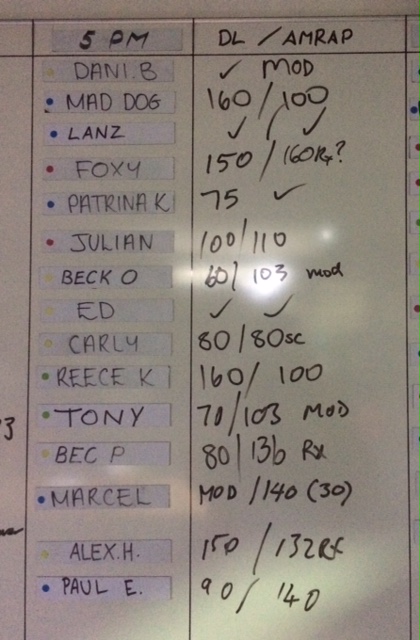 5 PM DL / AMRAP
DANI.B ✓ MOD
MAD DOG 160 / 100
LANZ ✓ / ✓
FOXY 150 / 160Rx?
PATRINA K 75 ✓
JULIAN 100/110
BECK O 60/ 103 mod
ED ✓ ✓
CARLY 80/80sc
REECE K 160/ 100
TONY 70/103 MOD
BEC P 80/136 Rx
MARCEL MOD /140 (30)
ALEX.H. 150 /132Rx
PAUL E. 90/ 140
3